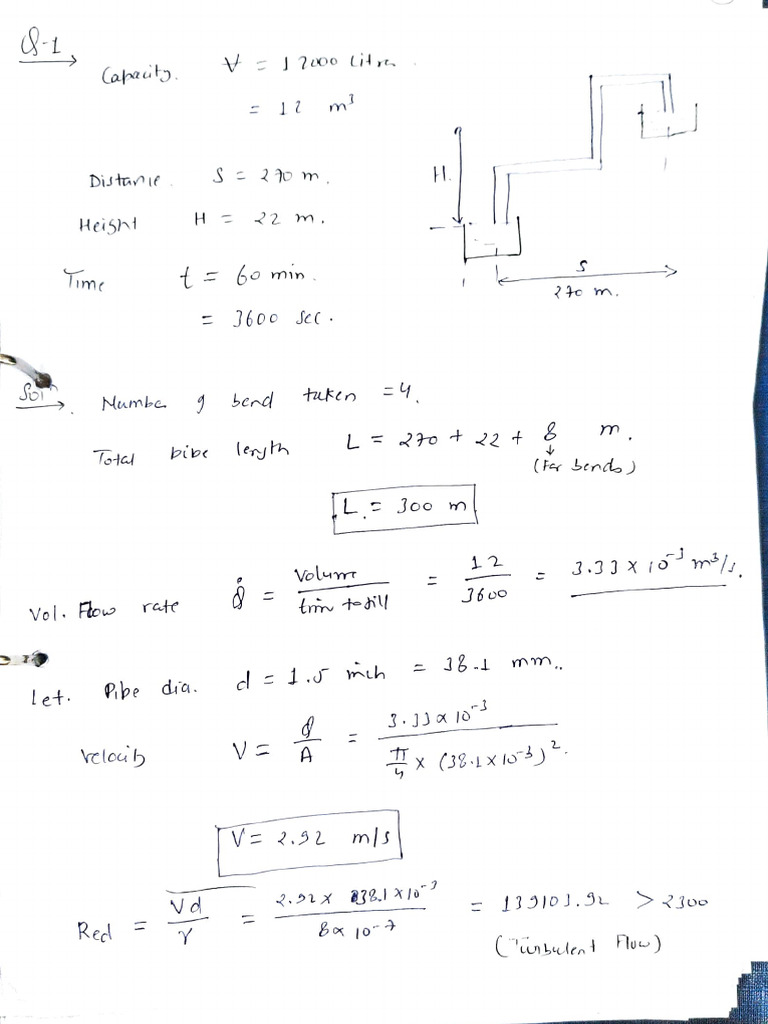 Q-1
Capacity. V = 12000 Litre.
= 12 m³
Distance. S = 270 m.
Height H = 22 m.
Time t = 60 min.
= 3600 sec.
H.
S
270 m.
Solⁿ. Number of bend taken = 4.
Total pipe length L = 270 + 22 + 8 m.
↓
(For bends)
L = 300 m
Vol. Flow rate Q̇ = Volume / time to fill = 12 / 3600 = 3.33 × 10⁻³ m³/s.
Let. Pipe dia. d = 1.5 inch = 38.1 mm..
Velocity V = Q / A = 3.33 × 10⁻³ / π/4 × (38.1 × 10⁻³)².
V = 2.92 m/s
Red = Vd / γ = 2.92 × 38.1 × 10⁻³ / 8 × 10⁻⁷ = 139103.92 > 2300
(Turbulent Flow)